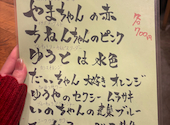 やまちゃんの赤
ちねんちゃんのピンク
ゆうとは水色
だいちゃん大好きオレンジ
ゆうやのセクシームラサキ
いのちゃんの元気ブルー
700円